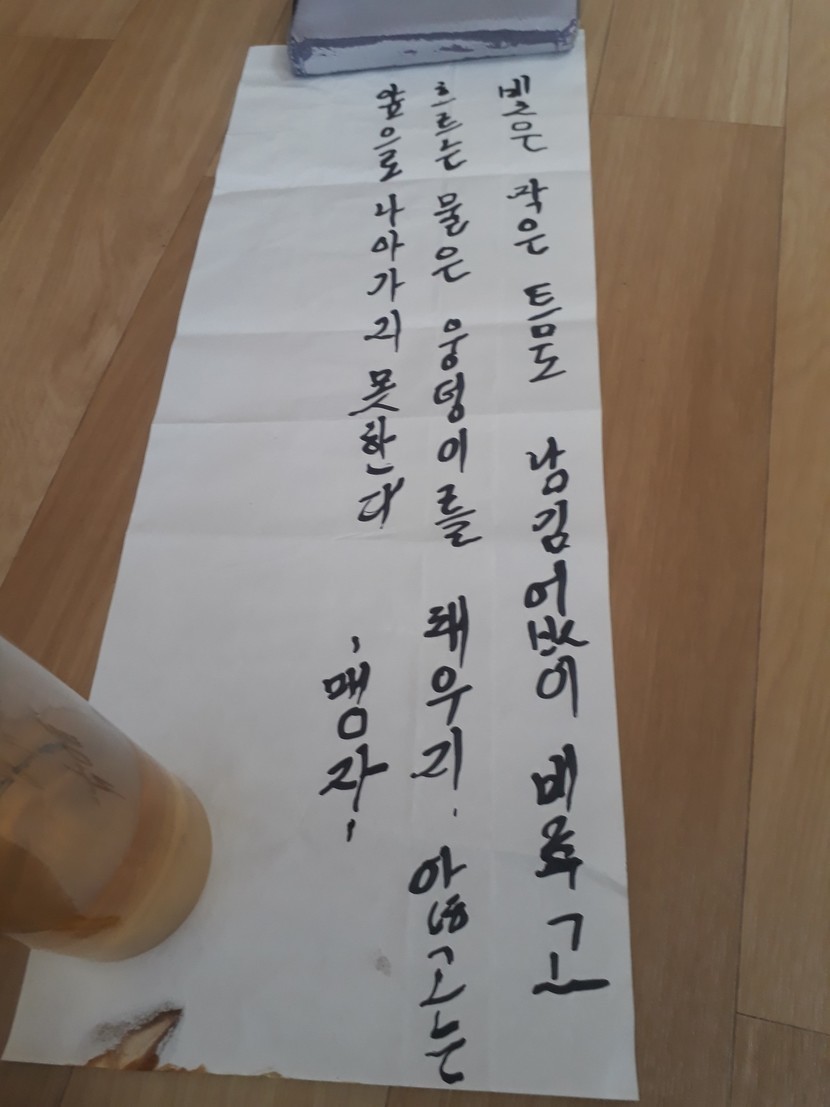 빛은 작은 틈도 남김없이 비추고
흐르는 물은 웅덩이를 채우지 않고는
앞으로 나아가지 못한다
-맹자-